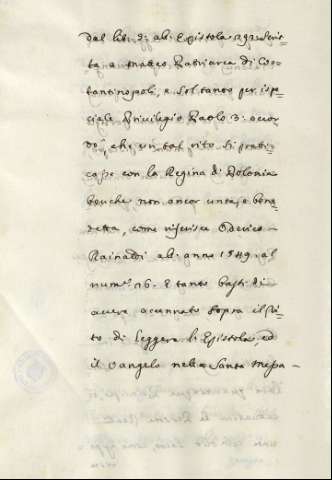 dal lib: 2: ab: Epistola 292: Scrit=
ta a Matteo Patriarca di Cos=
tantinopoli, e Soltanto per isp=
ciale Privilegio Paolo 3: accor=
dò, che un tal rito si prati=
casse con la Regina di Polonia
benche non ancor unta, e bene
detta, come riferisce Oderico
Rainaldi ab: anno 1549. al
num: 16. E tanto basti di
avere accennato Sopra il Ri=
to di leggere li Epistola, ed
il Vangelo nella Santa Messa